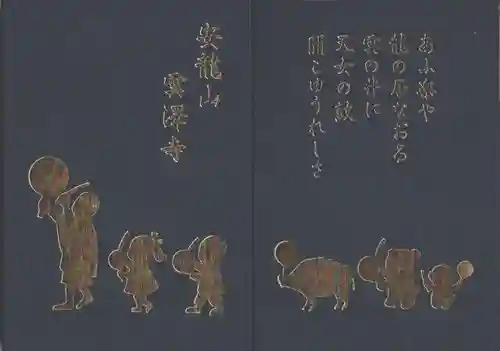 安龍山
雲澤寺
龍の
なおる
雲の井に
天女の鼓
聞こゆうれしさ